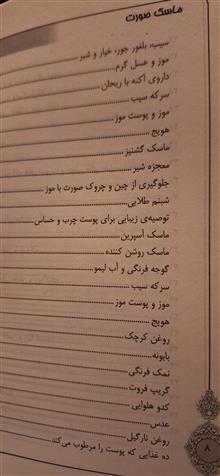 ماسک صورت
سیب، بلغور جور، خیار و شیر
موز و عسل گرم
داروی آکنه با ریحان
سرکه سیب
موز و پوست موز
هویج
ماسک گشنیز
معجزه شیر
جلوگیری از چین و چروک صورت با موز
شبنم طلایی
توصیه‌ی زیبایی برای پوست چرب و حساس
ماسک آسپرین
ماسک روشن کننده
گوجه فرنگی و آب لیمو
سرکه سیب
موز و پوست موز
هویج
روغن کرچک
بابونه
نمک فرنگی
گریپ فروت
کدو حلوایی
عدس
روغن نارگیل
ده غذایی که پوست را مرطوب می‌کند
۸